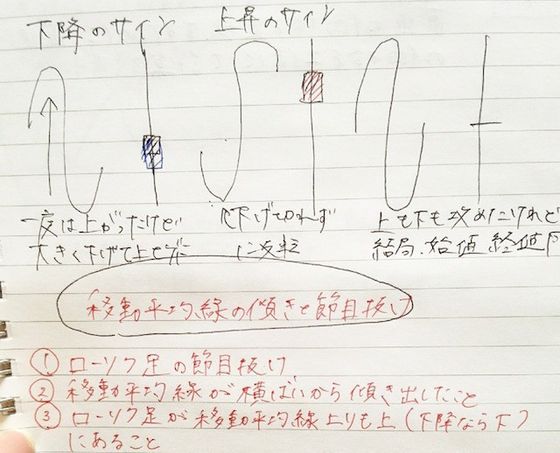 下降のサイン
上昇のサイン
一度は上がったけど
大きく下げて
下げて切れず
に反転
上も下も攻めたけれど
結局、始値、終値
移動平均線の傾きと節目抜け
① ローソク足の節目抜け
② 移動平均線が横ばいから傾き出したこと
③ ローソク足が移動平均線よりも上(下降なら下)
にあること